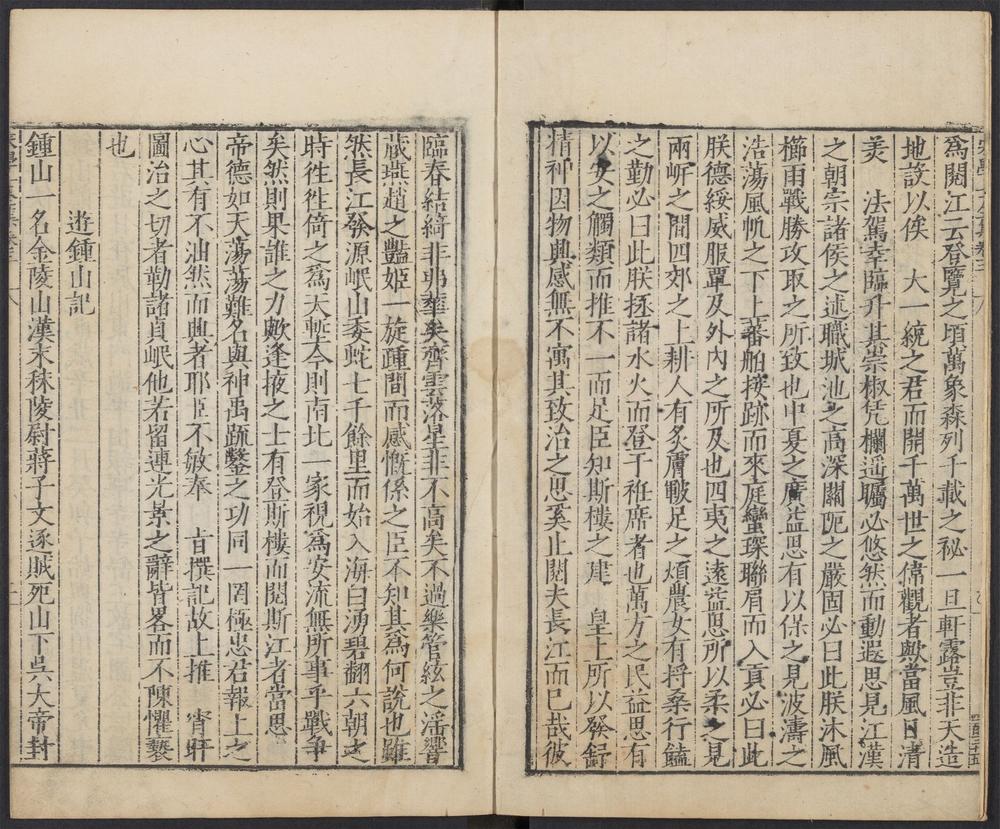 爲閱江云登覽之頃萬象森列千載之秘一旦軒露豈非天造
地設以俟　大一統之君而開千萬世之偉觀者歟當風日清
美　法駕幸臨升其崇椒凭欄遥矚必悠然而動遐思見江漢
之朝宗諸侯之述職城池之高深關阨之嚴固必曰此朕沐風
櫛雨戰勝攻取之所致也中夏之廣益思有以保之見波濤之
浩蕩風帆之下上蕃舶接跡而來庭蠻琛聯肩而入貢必曰此
朕德綏威服覃及外內之所及也四夷之遠益思所以柔之見
兩岸之間四郊之上耕人有炙膚皸足之煩農女有捋桑行饁
之勤必曰此朕拯諸水火而登于袵席者也萬方之民益思有
以安之觸類而推不一而足臣知斯樓之建　皇上所以發舒
精神因物興感無不寓其致治之思奚止閱夫長江而已哉彼
臨春結綺非弗華矣齊雲落星非不高矣不過樂管絃之滛響
藏燕趙之豔姬一旋踵間而感慨係之臣不知其爲何說也雖
然長江發源岷山委蛇七千餘里而始入海白湧碧翻六朝之
時徃徃倚之爲天塹今則南北一家視爲安流無所事乎戰争
矣然則果誰之力歟逢掖之士有登斯樓而閱斯江者當思
帝德如天蕩蕩難名與神禹疏鑿之功同一罔極忠君報上之
心其有不油然而興者耶臣不敏奉　旨撰記故上推　宵旰
圖治之切者勒諸貞岷他若留連光景之辭皆畧而不陳懼䙝
也
遊鍾山記
鍾山一名金陵山漢末秣陵尉蔣子文逐賊死山下吳大帝封